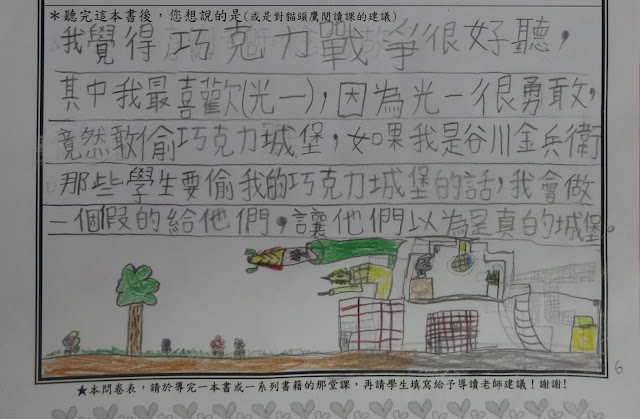 ＊聽完這本書後，您想說的是(或是對貓頭鷹閱讀課的建議)
我覺得巧克力戰爭很好聽，
其中我最喜歡(光一)，因為光一很勇敢，
竟然敢偷巧克力城堡，如果我是谷川金兵衛
那些學生要偷我的巧克力城堡的話，我會做
一個假的給他們，讓他們以為是真的城堡。
★本問卷表，請於導完一本書或一系列書籍的那堂課，再請學生填寫給予導讀老師建議！謝謝！
6